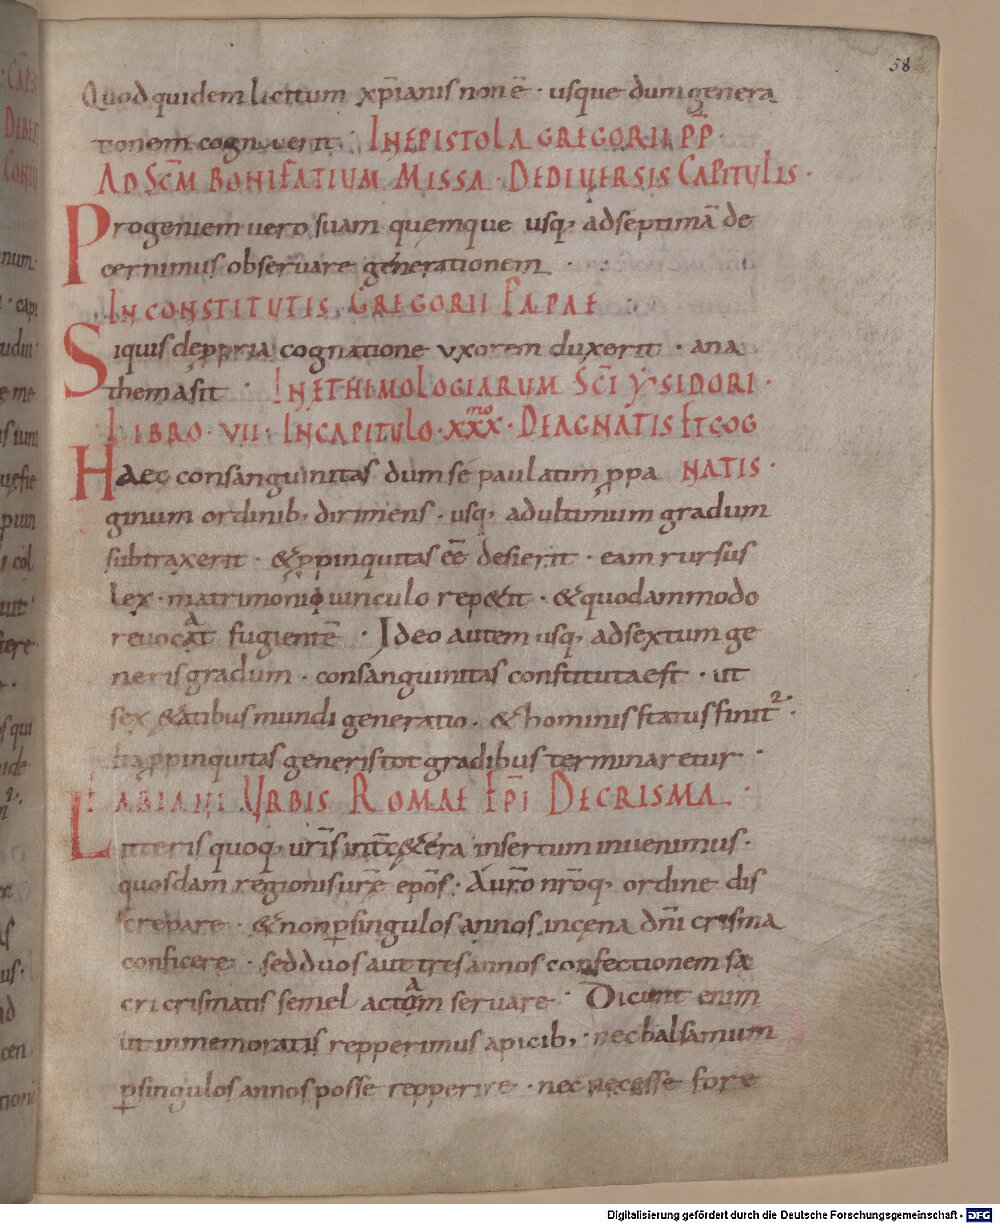 58
Quod quidem licitum xp̄ianis non ē · usque dum genera
tionem cognouerit · IN EPISTOLA GREGORII P̄P̄ ·
AD SC̄M BONIFATIUM MISSA · DE DIUERSIS CAPITULIS ·
Progeniem uero suam quemque usq, ad septimā de
cernimus obseruare generationem ·
IN CONSTITUTIS GREGORII PAPAE ·
Siquis de ꝓpria cognatione uxorem duxerit · ana
thema sit · IN ETHIMOLOGIARUM SC̄I YSIDORI ·
LIBRO · VII · IN CAPITULO · XXX·mo DE AGNATIS ET COG
Haec consanguinitas dum se paulatim ꝓpa NATIS ·
ginum ordinib, dirimens · usq, ad ultimum gradum
subtraxerit · & ꝓpinquitas eē desierit · eam rursus
lex · matrimonii uinculo rep&it · & quodammodo
reuocat fugientē · Ideo autem usq, ad sextum ge
neris gradum · consanguinitas constituta est · ut
sex &atibus mundi generatio · & hominis status finit2 ·
ita ꝓpinquitas generis tot gradibus terminaretur ·
FABIANI URBIS ROMAE EP̄I DE CRISMA ·
Litteris quoq, ur̄is int̄ c&era insertum inuenimus ·
quosdam regionis ur̄ę epōs · A ur̄o nr̄oq, ordine dis
crepare · & non ꝑ singulos annos in cęna dn̄i crisma
conficere · sed duos aut tres annos confectionem sa
cri crismatis semel actam seruare · Dicunt enim
ut in memoratis repperimus apicib, · nec balsamum
ꝑ singulos annos posse repperire · nec necesse fore
Digitalisierung gefördert durch die Deutsche Forschungsgemeinschaft - DFG